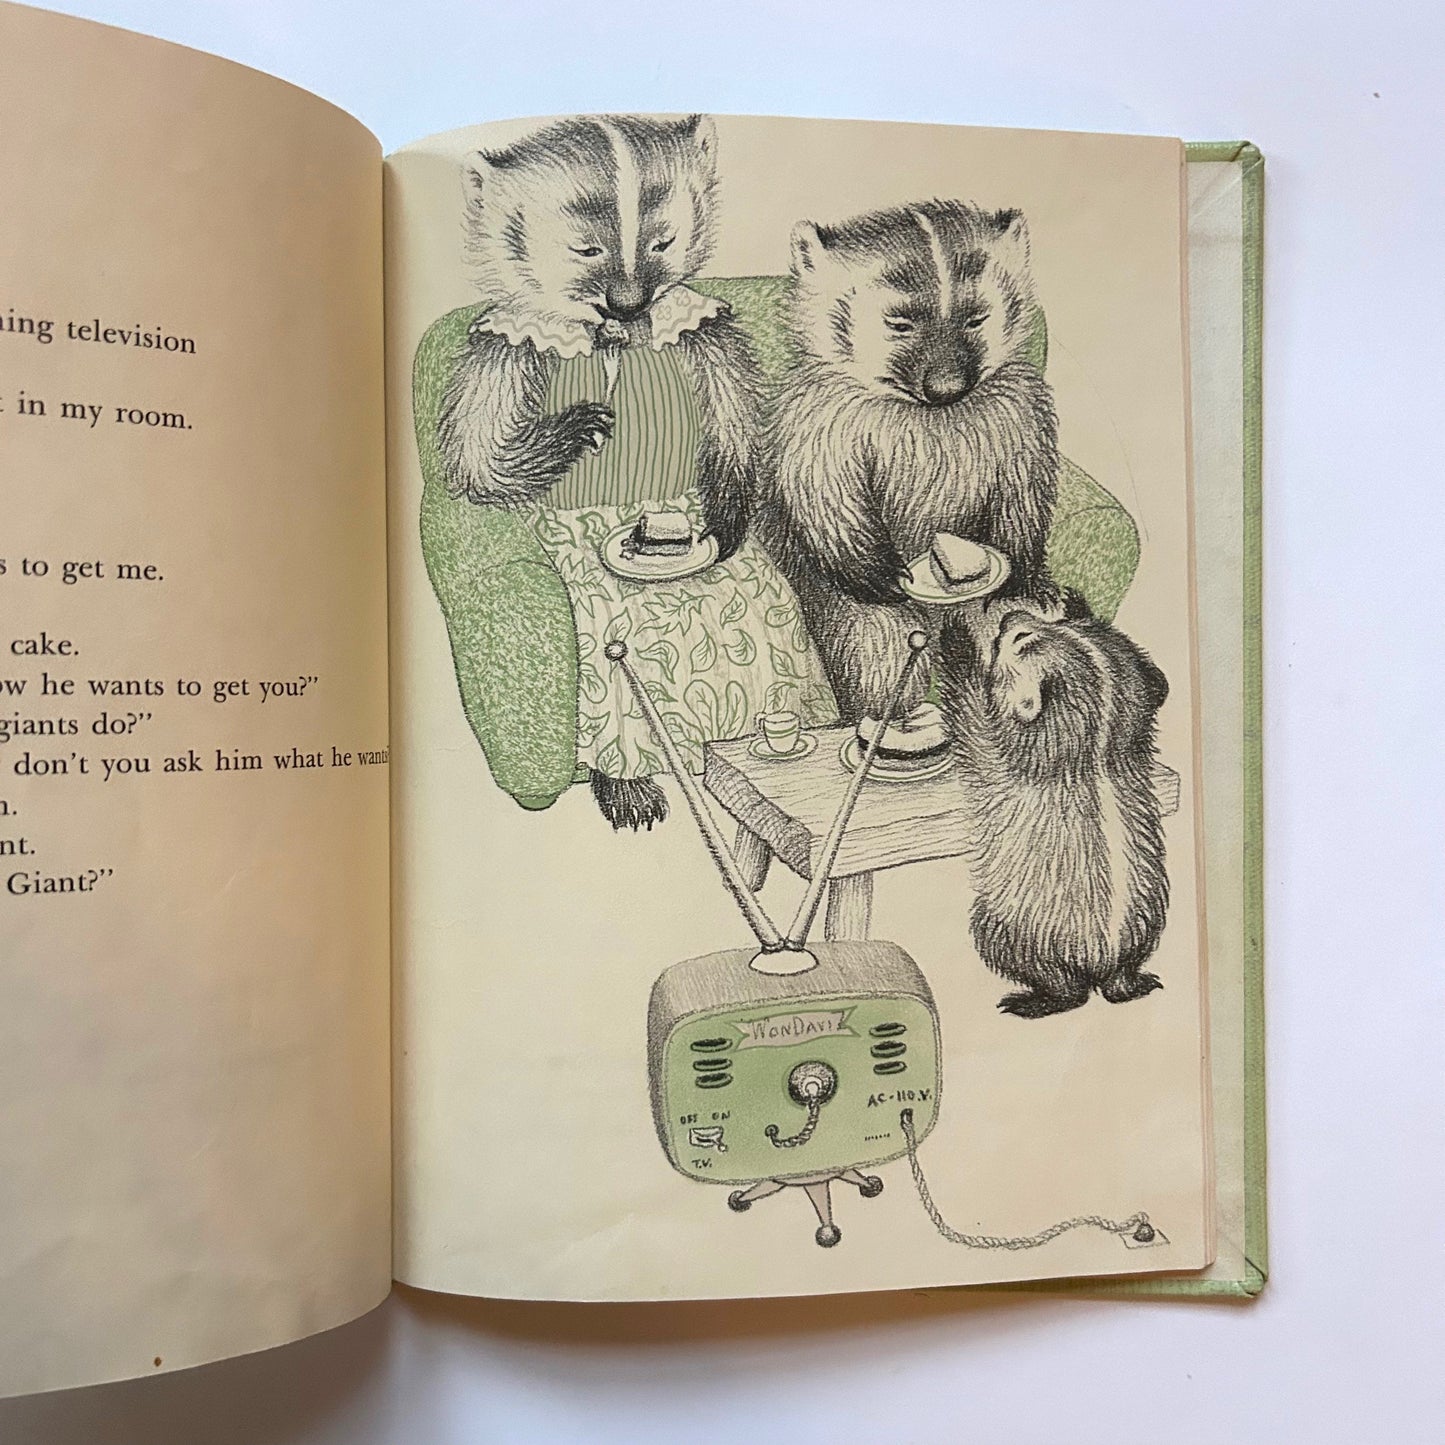 television
in my room.
to get me.
cake.
he wants to get you?”
giants do?”
don’t you ask him what he wants
Giant?”
WONDAVI
OFF ON
T.V.
AC-110.V.